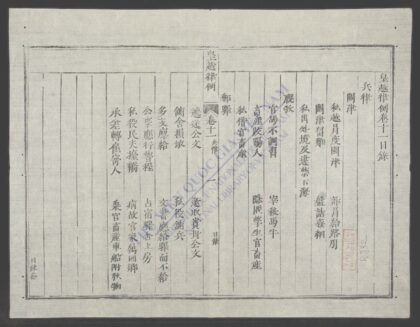 皇越律例卷十一目錄
兵律
關津
私越冒度關津 詐冒給路引
關津留難 盤詰姦細
私出外境及違禁下海
廄牧
官馬不調習 宰殺馬牛
畜產咬踢人 隱匿孳生官畜產
私借官畜產
皇越律例
卷十一
目錄
郵驛
遞送公文 邀取實封公文
鋪舍損壞 私役鋪兵
多支廩給 文書應給驛而不給
公事應行稽程 占宿驛舍上房
私役民夫擡轎 病故官家屬還鄉
承差轉雇寄人 乘官畜產車船附私物
目錄終